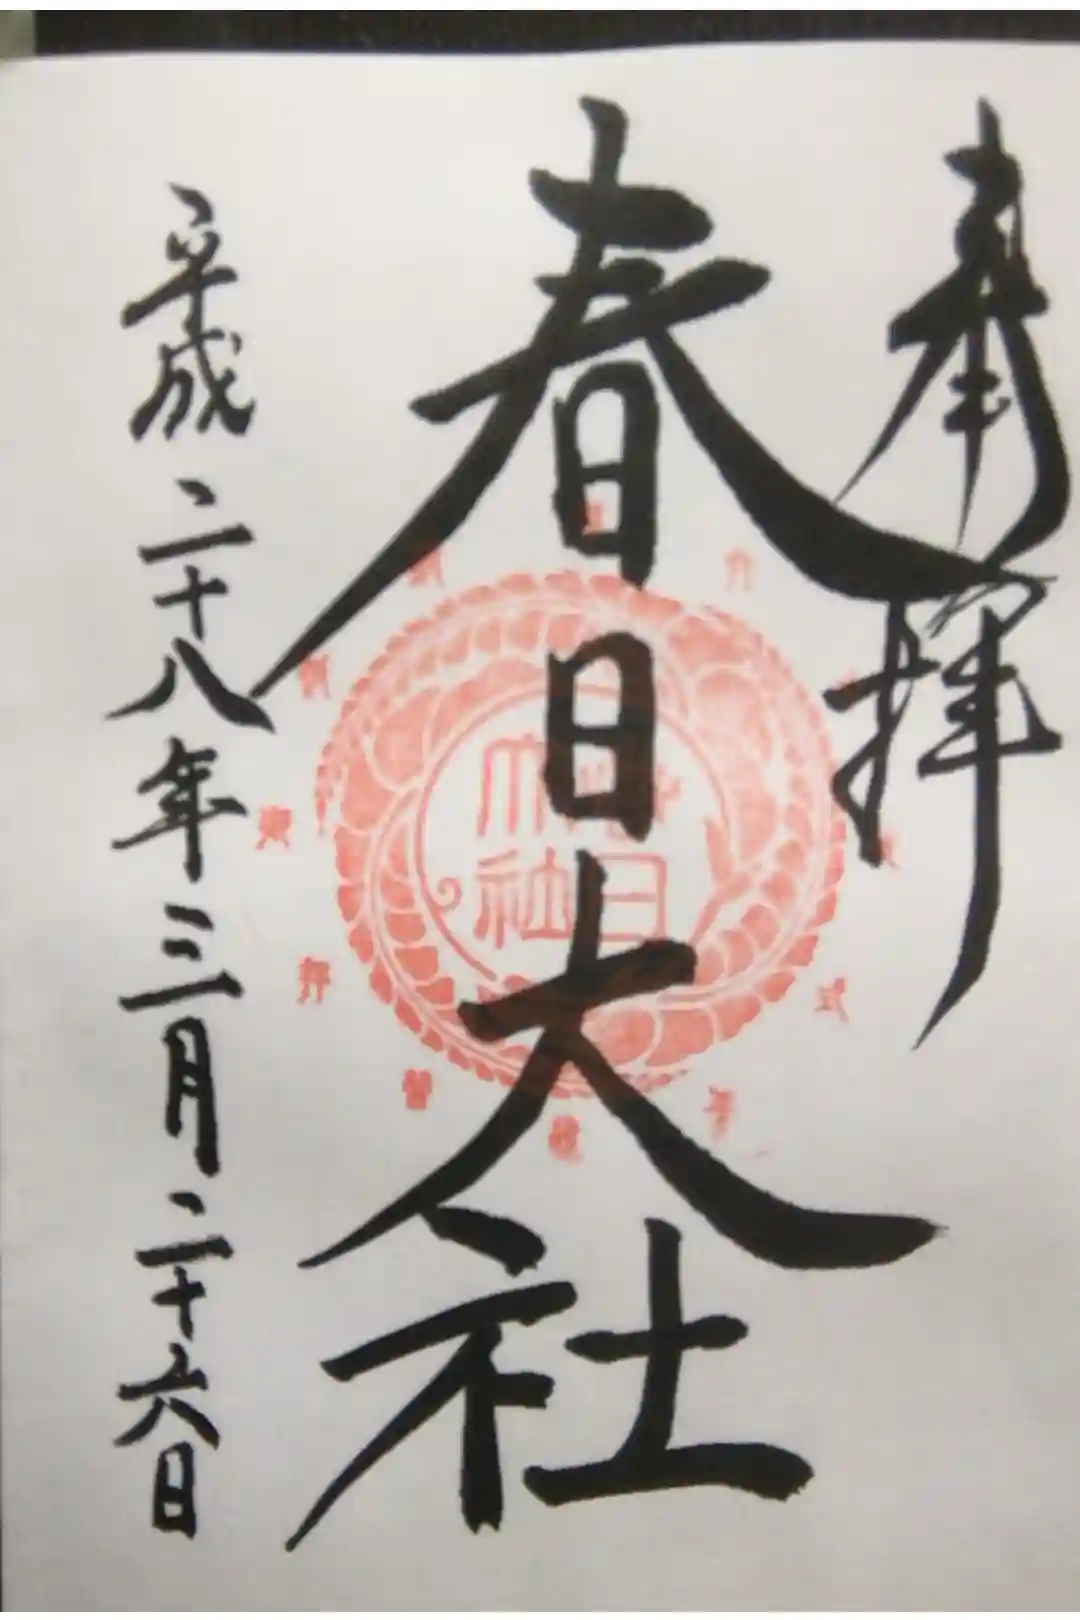 奉拝
春日大社
平成二十八年三月二十六日